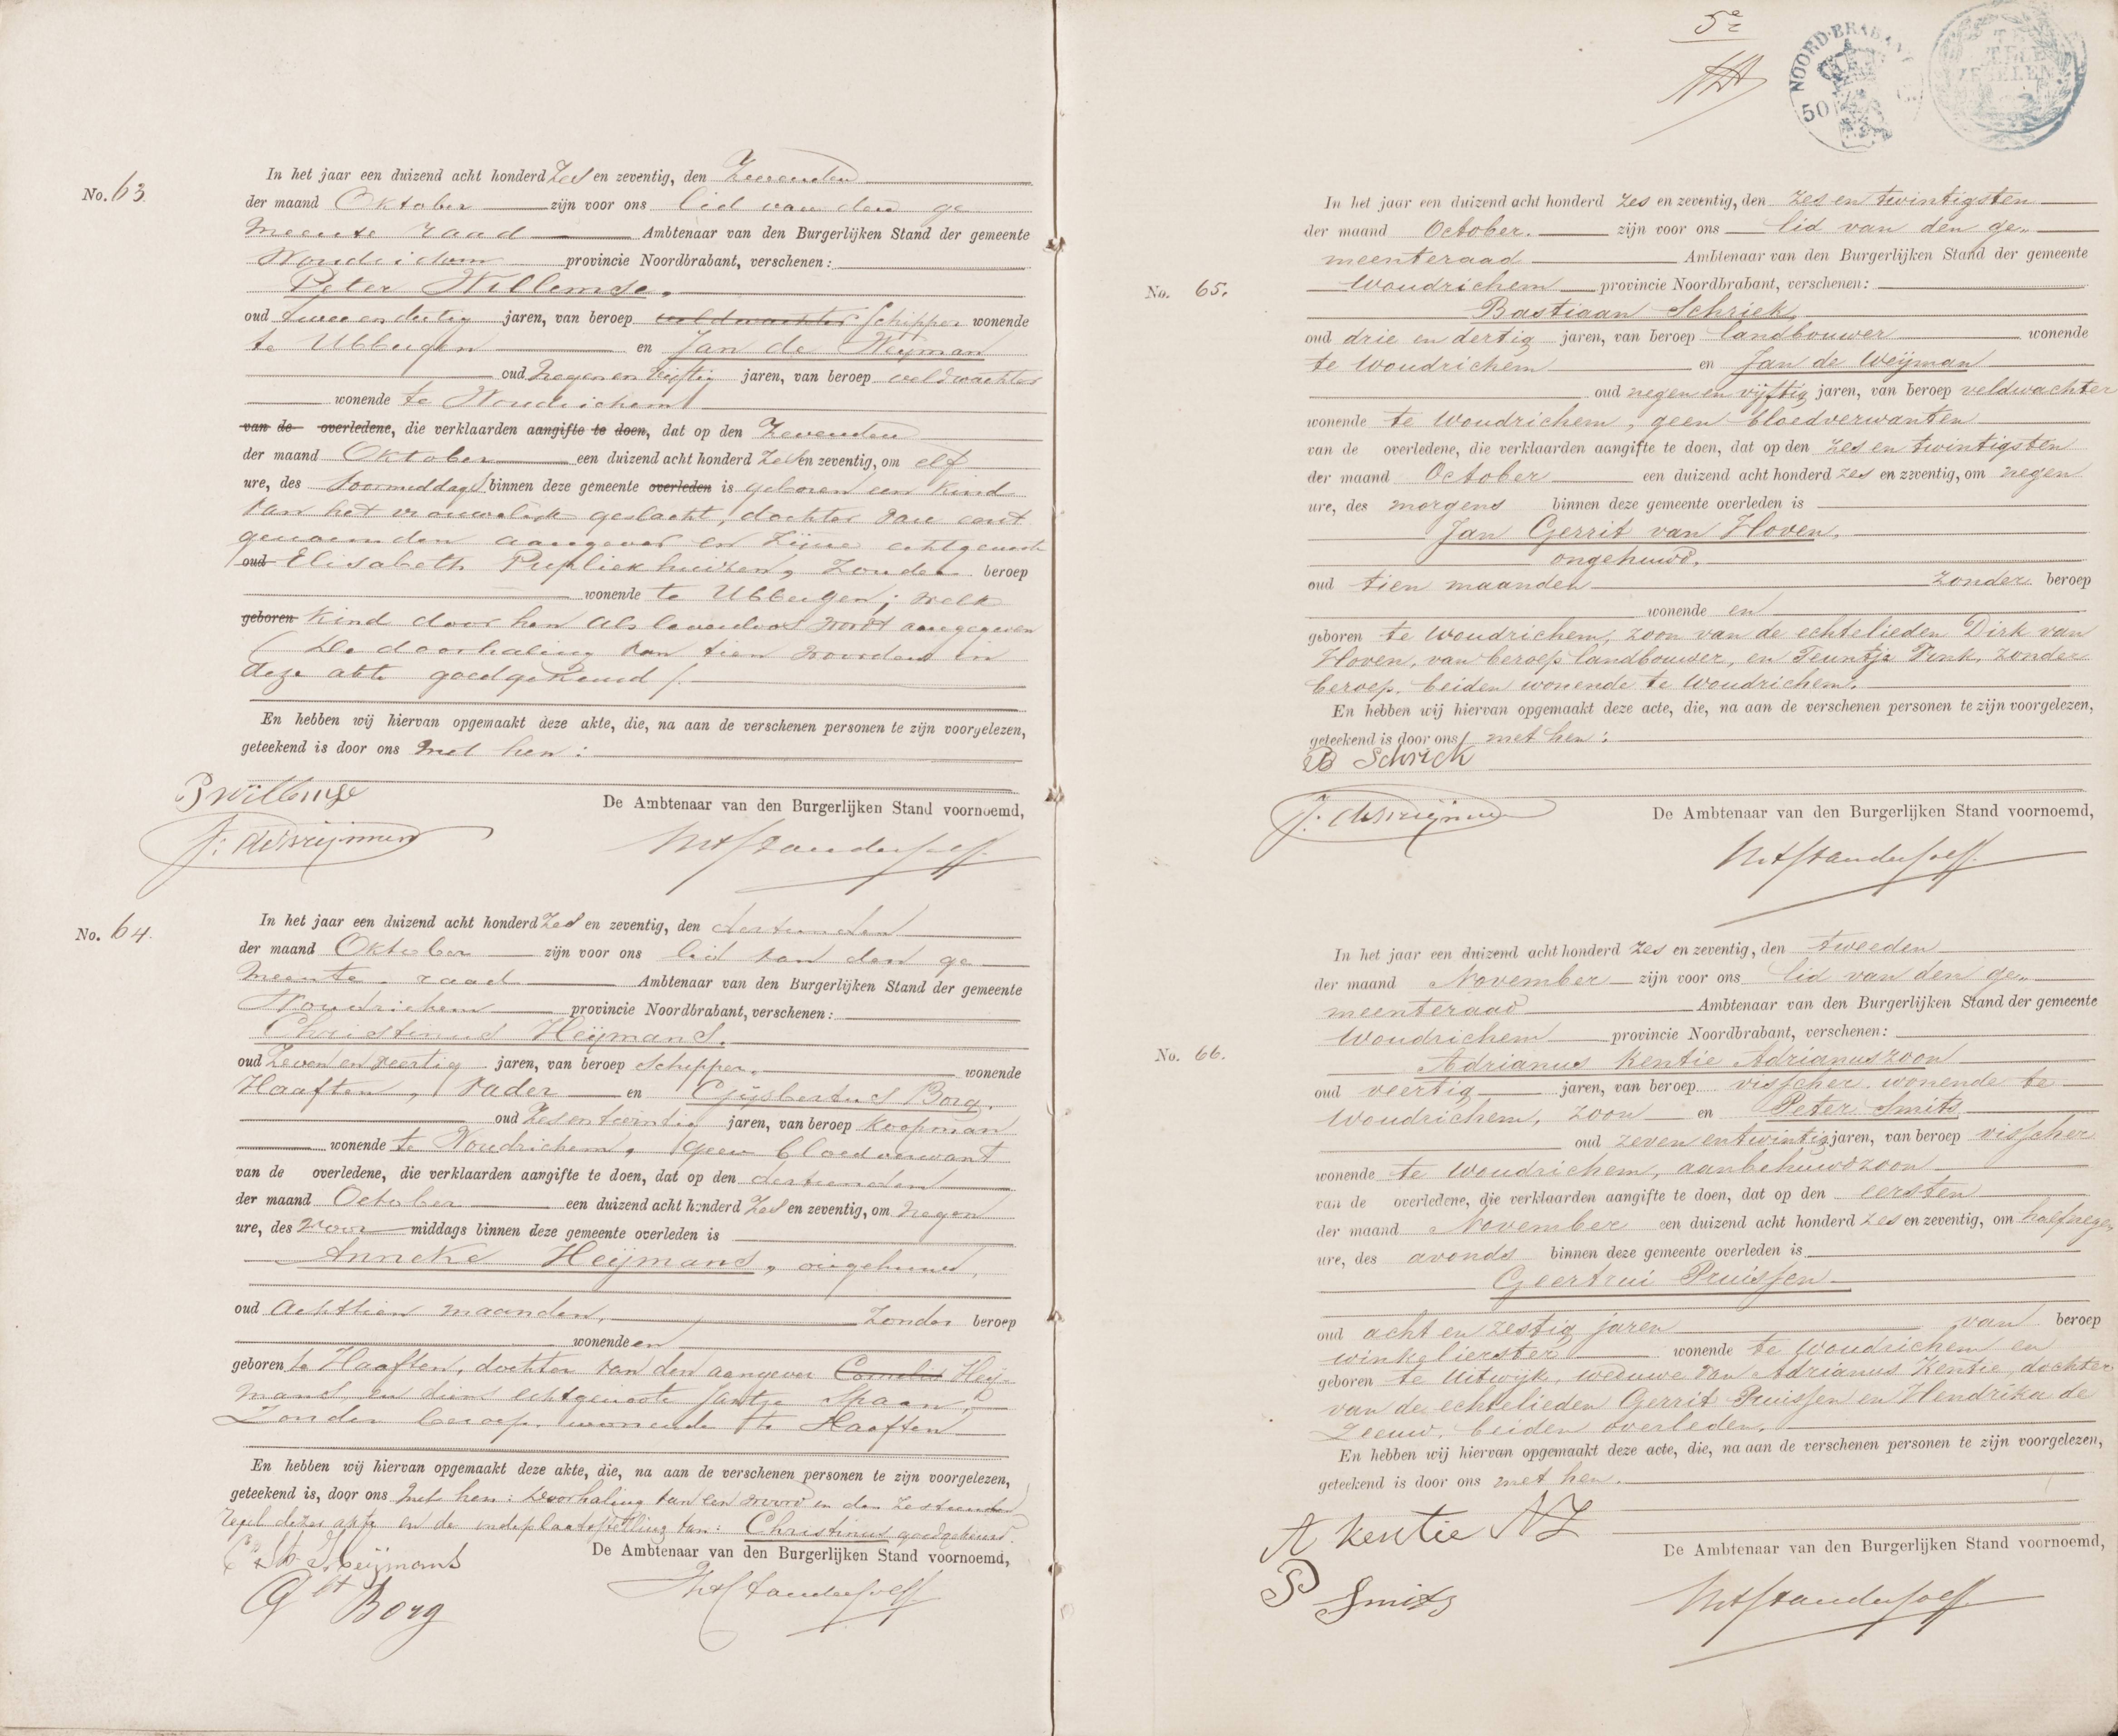 No. 63.
In het jaar een duizend acht honderd Zes en zeventig, den Zevenden
der maand Oktober zijn voor ons lid van den ge
meente raad Ambtenaar van den Burgerlijken Stand der gemeente
Woudrichem provincie Noordbrabant, verschenen:
Peter Willemse,
oud twee en dertig jaren, van beroep veldwachter Schipper wonende
te Ubbergen en Jan de Weijman
oud Negen en Vijftig jaren, van beroep veldwachter
wonende te Woudrichem
van de overledene, die verklaarden aangifte te doen, dat op den Zevenden
der maand Oktober een duizend acht honderd Zes en zeventig, om elf
ure, des Voormiddags binnen deze gemeente overleden is geboren een Kind
van het vrouwelijk geslacht, dochter van eerst
genoemden aangever en Zijne echtgenoote
oud Elisabeth Pupliekhuizen, Zonder beroep
wonende te Ubbergen; welk
geboren Kind door hen als levenloos wordt aangegeven
(De doorhaling van tien woorden in
deze akte goedgekeurd).
En hebben wij hiervan opgemaakt deze akte, die, na aan de verschenen personen te zijn voorgelezen,
geteekend is door ons met hen:
P Willemse
De Ambtenaar van den Burgerlijken Stand voornoemd,
J: de Weijman
No. 64.
In het jaar een duizend acht honderd Zes en zeventig, den dertienden
der maand Oktober zijn voor ons lid van den ge
meente raad Ambtenaar van den Burgerlijken Stand der gemeente
Woudrichem provincie Noordbrabant, verschenen:
Christinus Heijmans.
oud Zeven en veertig jaren, van beroep Schipper, wonende
Haaften, Vader en Gijsbertus Borg,
oud Zes en twintig jaren, van beroep Koopman
wonende te Woudrichem, geen bloedverwant
van de overledene, die verklaarden aangifte te doen, dat op den dertienden
der maand October een duizend acht honderd Zes en zeventig, om Negen
ure, des voor middags binnen deze gemeente overleden is
Anneke Heijmans, ongehuwd,
oud Achttien maanden, Zonder beroep
wonende en
geboren te Haaften, dochter van den aangever Cornelis Heij-
mans, en diens echtgenoote Jantje Spaan,
Zonder beroep, wonende te Haaften
En hebben wij hiervan opgemaakt deze akte, die, na aan de verschenen personen te zijn voorgelezen,
geteekend is, door ons met hen: Doorhaling van een woord in den zestienden
regel dezer akte en de indeplaatsstelling van: Christinus goedgekeurd.
Heijmans
De Ambtenaar van den Burgerlijken Stand voornoemd,
Gbt Borg
5e
NOORD-BRABANT
50
ZEGELEN
No. 65.
In het jaar een duizend acht honderd zes en zeventig, den zes en twintigsten
der maand October. zijn voor ons lid van den ge„
meenteraad Ambtenaar van den Burgerlijken Stand der gemeente
Woudrichem provincie Noordbrabant, verschenen:
Bastiaan Schriek,
oud drie en dertig jaren, van beroep landbouwer wonende
te Woudrichem en Jan de Weijman
oud negen en vijftig jaren, van beroep veldwachter
wonende te Woudrichem, geen bloedverwanten
van de overledene, die verklaarden aangifte te doen, dat op den zes en twintigsten
der maand October een duizend acht honderd zes en zeventig, om negen
ure, des morgens binnen deze gemeente overleden is
Jan Gerrit van Hoven,
ongehuwd,
oud tien maanden zonder beroep
wonende en
geboren te Woudrichem, zoon van de echtelieden Dirk van
Hoven, van beroep landbouwer, en Teuntje Pink, zonder
beroep, beiden wonende te Woudrichem.
En hebben wij hiervan opgemaakt deze acte, die, na aan de verschenen personen te zijn voorgelezen,
geteekend is door ons met hen:
B Schrick
J: de Weijman
De Ambtenaar van den Burgerlijken Stand voornoemd,
No. 66.
In het jaar een duizend acht honderd zes en zeventig, den tweeden
der maand November zijn voor ons lid van den ge„
meenteraad Ambtenaar van den Burgerlijken Stand der gemeente
Woudrichem provincie Noordbrabant, verschenen:
Adrianus Kentie Adrianuszoon
oud veertig jaren, van beroep visscher wonende te
Woudrichem, zoon en Peter Smits
oud zeven en twintig jaren, van beroep visscher
wonende te Woudrichem, aanbehuwdzoon
van de overledene, die verklaarden aangifte te doen, dat op den eersten
der maand November een duizend acht honderd zes en zeventig, om halfnegen
ure, des avonds binnen deze gemeente overleden is
Geertrui Pruissen
oud acht en zestig jaren van beroep
winkelierster wonende te Woudrichem en
geboren te Uitwijk, weduwe van Adrianus Kentie, dochter
van de echtelieden Gerrit Pruissen en Hendrika de
Zeeuw, beiden overleden.
En hebben wij hiervan opgemaakt deze acte, die, na aan de verschenen personen te zijn voorgelezen,
geteekend is door ons met hen.
A Kentie AZ
De Ambtenaar van den Burgerlijken Stand voornoemd,
P Smits